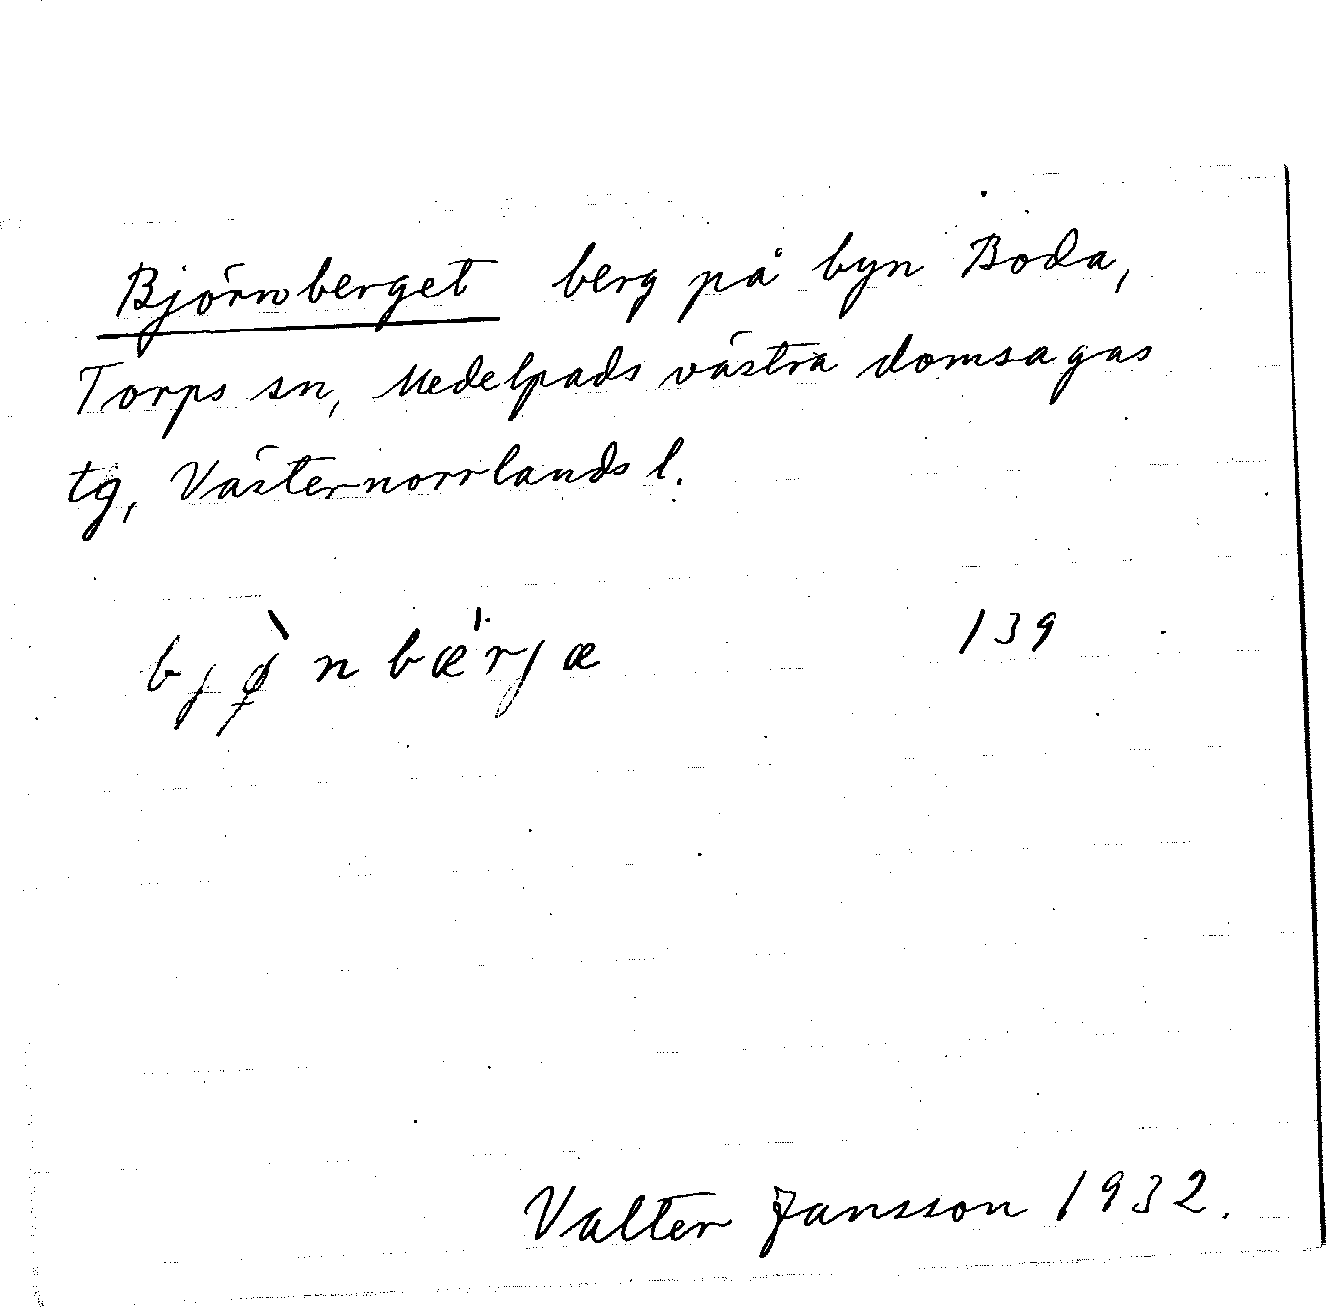 Björnberget berg på byn Boda,
Torps sn, Medelpads västra domsagas
tg, Västernorrlands l.
bjø̀nbæ'rjæ 139
Valter Jansson 1932.